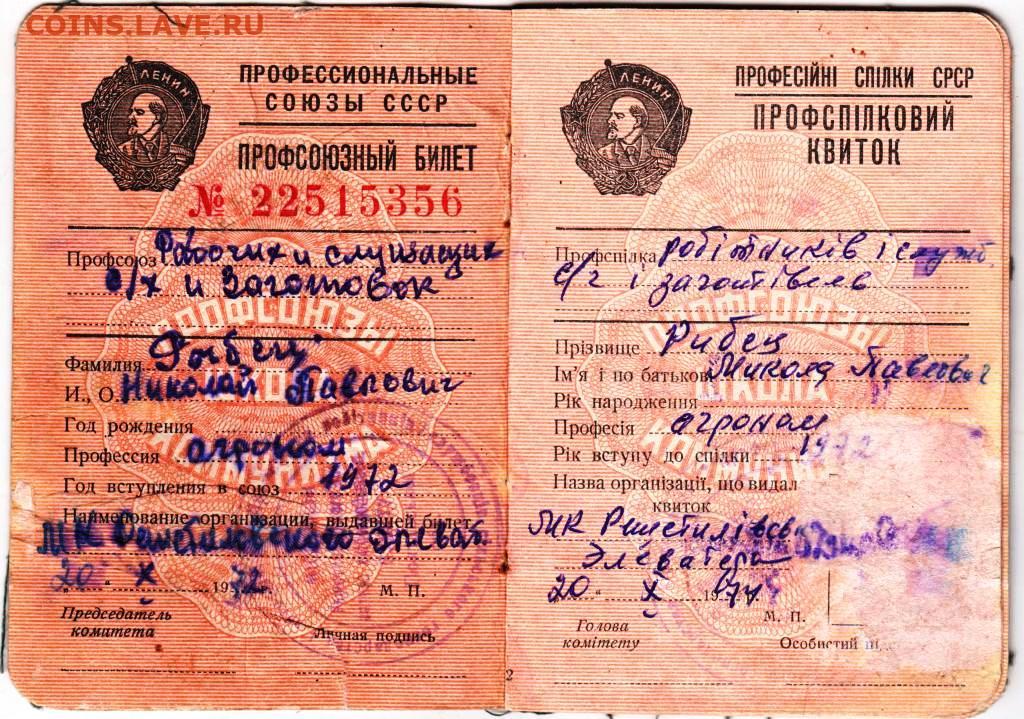 COINS.LAVE.RU
ЛЕНИН
ПРОФЕССИОНАЛЬНЫЕ
СОЮЗЫ СССР
ПРОФСОЮЗНЫЙ БИЛЕТ
№ 22515356
Профсоюз Рабочих и служащих
с/х и Заготовок
ПРОФСОЮЗЫ
ШКОЛА
КОММУНИЗМА
Фамилия Рыбец
И., О. Николай Павлович
Год рождения
Профессия агроном
Год вступления в союз 1972
Наименование организации, выдавшей билет
МК Решетиловского элеват.
20 " X 1972
М. П.
Председатель
комитета
Личная подпись
ЛЕНИН
ПРОФЕСІЙНІ СПІЛКИ СРСР
ПРОФСПІЛКОВИЙ
КВИТОК
Профспілка робітників і служб.
с/г і заготівель
ПРОФСОЮЗЫ
ШКОЛА
Прізвище Рибец
Ім’я і по батькові Микола Павлович
Рік народження
Професія агроном
Рік вступу до спілки 1972
Назва організації, що видала
квиток
МК Решетилівсь
Элеватера
20 " X
М. П.
Голова
комітету
Особистий
2